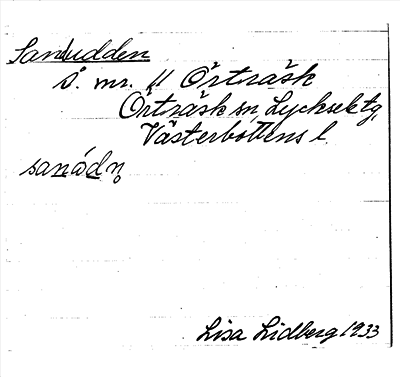 Sandudden
å. mr. 11 Örträsk
Örträsk sn, Lycksele tg,
Västerbottens l.
sanádn̥
Lisa Lidberg 1933